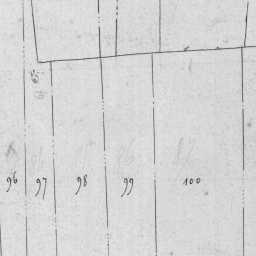 96 97 98 99 100